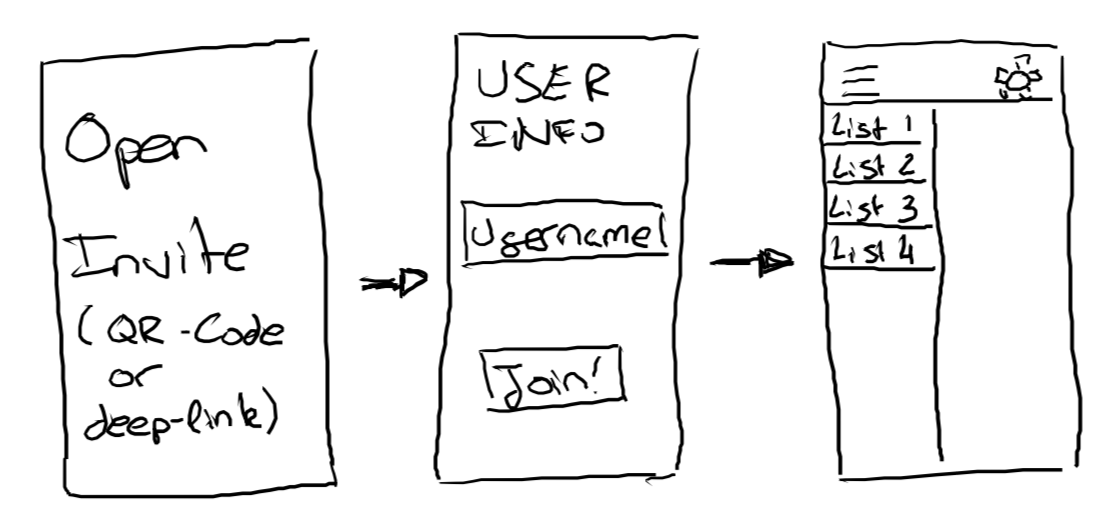 Open
Invite
(QR-Code
or
deep-link)
USER
INFO
Username
Join!
List 1
List 2
List 3
List 4